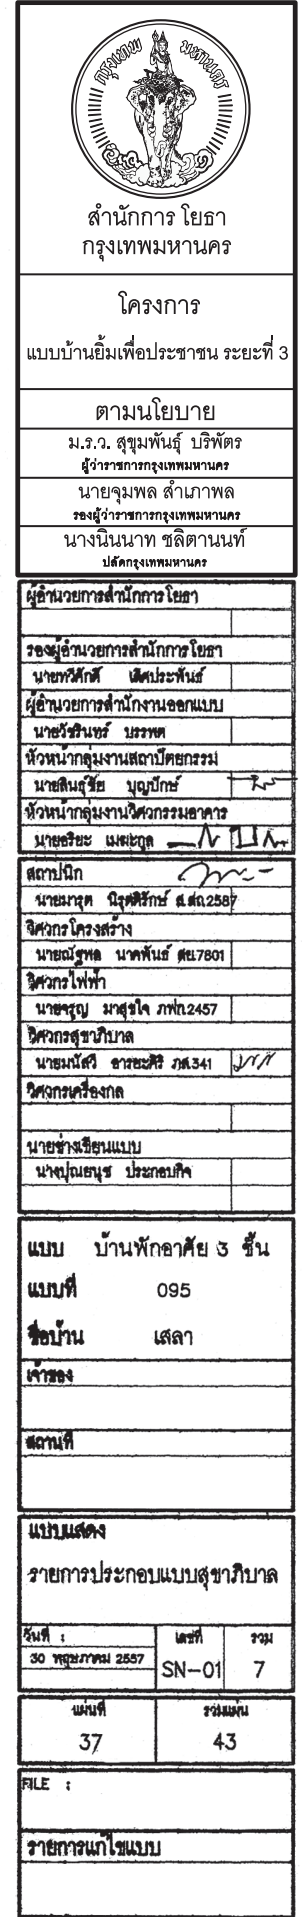 กรุงเทพ มหานคร
สำนักการโยธา
กรุงเทพมหานคร
โครงการ
แบบบ้านยิ้มเพื่อประชาชน ระยะที่ 3
ตามนโยบาย
ม.ร.ว. สุขุมพันธุ์ บริพัตร
ผู้ว่าราชการกรุงเทพมหานคร
นายจุมพล สำเภาพล
รองผู้ว่าราชการกรุงเทพมหานคร
นางนินนาท ชลิตานนท์
ปลัดกรุงเทพมหานคร
ผู้อำนวยการสำนักการโยธา
รองผู้อำนวยการสำนักการโยธา
นายทวีศักดิ์ เลิศประพันธ์
ผู้อำนวยการสำนักงานออกแบบ
นายวัชรินทร์ บรรพต
หัวหน้ากลุ่มงานสถาปัตยกรรม
นายสินธุ์ชัย บุญปักษ์
หัวหน้ากลุ่มงานวิศวกรรมอาคาร
นายอริยะ เมฆะกูล
สถาปนิก
นายมารุต นิรุตติรักษ์ ส.สถ.2587
วิศวกรโครงสร้าง
นายณัฐพล นาคพันธ์ สย.7801
วิศวกรไฟฟ้า
นายจรูญ มาสุขใจ ภฟก.2457
วิศวกรสุขาภิบาล
นายมนัสวี อารยะศิริ ภส.341
วิศวกรเครื่องกล
นายช่างเขียนแบบ
นางปุณยนุช ประกอบกิจ
แบบ บ้านพักอาศัย 3 ชั้น
แบบที่ 095
ชื่อบ้าน เสลา
เจ้าของ
สถานที่
แบบแสดง
รายการประกอบแบบสุขาภิบาล
วันที่ : เลขที่ รวม
30 พฤษภาคม 2557 SN-01 7
แผ่นที่ รวมแผ่น
37 43
FILE :
รายการแก้ไขแบบ